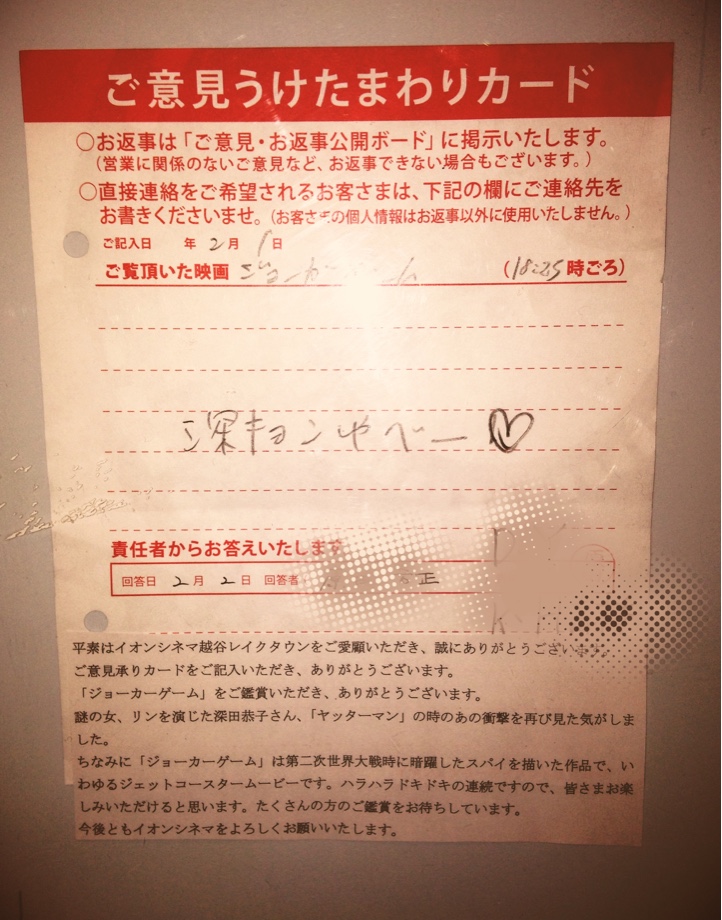 ご意見うけたまわりカード
○お返事は「ご意見・お返事公開ボード」に掲示いたします。
(営業に関係のないご意見など、お返事できない場合もございます。)
○直接連絡をご希望されるお客さまは、下記の欄にご連絡先を
お書きくださいませ。(お客さまの個人情報はお返事以外に使用いたしません。)
ご記入日 年 2月 1日
ご覧頂いた映画 ジョーカーゲーム (18:25時ごろ)
深キョンやべー♡
責任者からお答えいたします
回答日 2月 2日 回答者 正
平素はイオンシネマ越谷レイクタウンをご愛顧いただき、誠にありがとうございます。
ご意見承りカードをご記入いただき、ありがとうございます。
「ジョーカーゲーム」をご鑑賞いただき、ありがとうございます。
謎の女、リンを演じた深田恭子さん、「ヤッターマン」の時のあの衝撃を再び見た気がしま
した。
ちなみに「ジョーカーゲーム」は第二次世界大戦時に暗躍したスパイを描いた作品で、い
わゆるジェットコースタームービーです。ハラハラドキドキの連続ですので、皆さまお楽
しみいただけると思います。たくさんの方のご鑑賞をお待ちしています。
今後ともイオンシネマをよろしくお願いいたします。